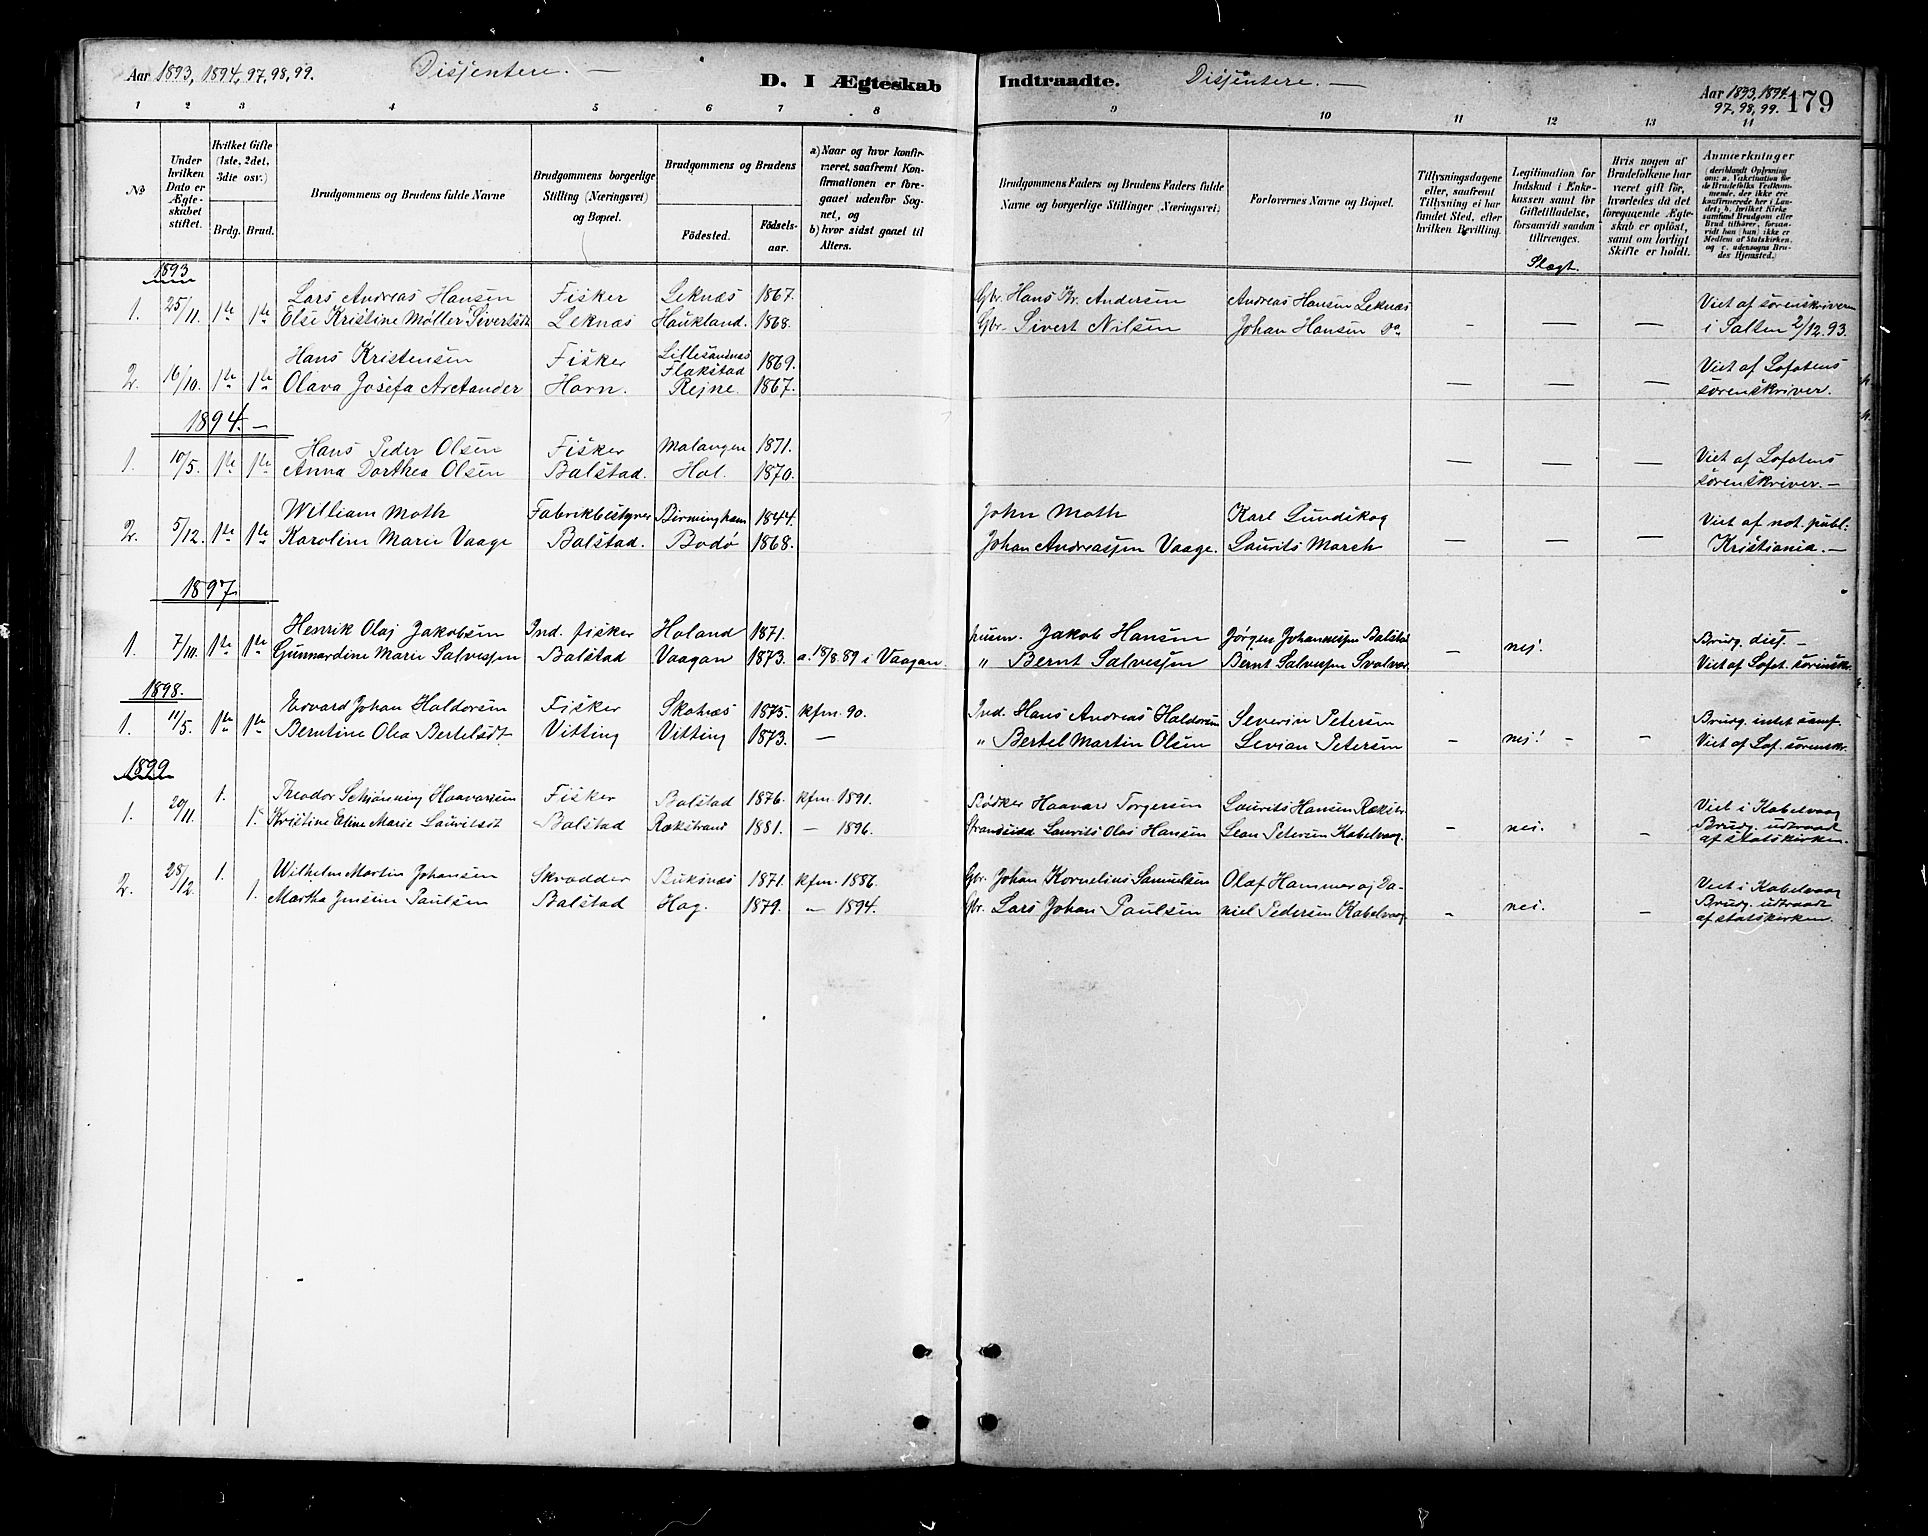 Aar 1893, 1894, 97, 98, 99. Dissentere. — D. I Ægteskab Indtraadte. Dissentere. — Aar 1893, 1894, 97, 98, 99. 179
1 2 3 4 5 6 7 8 9 10 11 12 13 11
№
Under hvilken Dato er Ægteskabet stiftet.
Hvilket Gifte (1ste, 2det, 3die osv.)
Brdg. Brud.
Brudgommens og Brudens fulde Navne
Brudgommens borgerlige Stilling (Næringsvei) og Bopæl.
Brudgommens og Brudens
Fødested. Fødselsaar.
a) Naar og hvor konfirmeret, saafremt Konfirmationen er foregaaet udenfor Sognet, og
b) hvor sidst gaaet til Alters.
Brudgommens Faders og Brudens Faders fulde Navne og borgerlige Stillinger (Næringsvei)
Forlovernes Navne og Bopæl.
Tillysningsdagene eller, saafremt Tillysning ei har fundet Sted, efter hvilken Bevilling.
Legitimation for Indskud i Enkekassen samt for Giftetilladelse, forsaavidt saadan tiltrænges.
Slægt.
Hvis nogen af Brudefolkene har været gift før, hvorledes da det foregaaende Ægteskab er opløst, samt om lovligt Skifte er holdt.
Anmærkninger
(deriblandt Oplysning om: a. Vakcination for de Brudefolks Vedkommende, der ikke ere konfirmerede her i Landet; b. hvilket Kirkesamfund Brudgom eller Brud tilhører, forsaavidt han (hun) ikke er Medlem af Statskirken, og c. udensogns Brudes Hjemsted.)
1893
Lars Andreas Hansen Fisker Leknæs 1867. Gbr. Hans Kr. Andersen Andreas Hansen Leknæs Viet af sørenskriveren
1. 25/11. 1ste 1ste Else Kristine Møller Sivertsdt. Leknæs Haukland. 1868. Gbr. Sivert Nilsen Johan Hansen do — — — i Salten 2/12.93.
Hans Kristensen Fisker Lillesandnæs Flakstad 1869. Viet af Lofotens
2. 16/10. 1ste 1ste Olava Josefa Arctander Horn. Rejne. 1867. — — — sørenskriver.
1894. —
Hans Peder Olsen Fisker Malangen 1871. Viet af Lofotens
1. 10/5. 1ste 1ste Anna Dorthea Olsen Balstad. Hol. 1870. — — — sørenskriver. —
William Moth Fabrikbestyrer Birmingham 1844. John Moth Karl Lundskog Viet af not. publ.
2. 5/12. 1ste 1ste Karoline Marie Vaage Balstad. Bodø 1868. Johan Andreassen Vaage. Laurits March — — — Kristiania. —
1897
Henrik Olaj Jakobsen Ind. fisker Holand 1871. husm. Jakob Hansen Jørgen Johannessen Balstad Brudg. diss. —
1. 7/10. 1ste 1ste Gunnardine Marie Salvessen Balstad Vaagan 1873. a. 18/8.89 i Vaagan „ Bernt Salvessen Bernt Salvessen Svolvær — nei. Viet af Lofot. sørenskr.
1898.
Edvard Johan Haldorsen Fisker Skotnæs 1875. kfm. 90. Ind. Hans Andreas Haldorsen Severin Petersen Brudg. intet samf.
1. 11/5. 1ste 1ste Berntine Olea Bertelsdt. Vitting Vitting 1873. — „ Bertel Martin Olsen Levian Petersen — nei! — — Viet af Lof. sørenskr.
1899
Theodor Schiønning Haavardsen Fisker Balstad 1876. kfm. 1891. Bødker Haavard Torgersen Laurits Hansen Viet i Kabelvaag
1. 20/11. 1. 1. Kristine Eline Marie Lauritsdt. Balstad Rækstrand 1881. — 1896. Strandsidd. Laurits Olai Hansen Petersen Kabelvaag. — nei. — Brudg. udtraadt af statskirken.
Wilhelm Martin Johansen Skrædder Buksnæs 1871. kfm. 1886. Gbr. Johan Kornelius Samuelsen Olaf Hammer oj Da- Viet i Kabelvaag
2. 28/12. 1. 1. Martha Jensine Paulsen Balstad Hag. 1879. — 1894. Gbr. Lars Johan Paulsen niel Pedersen Kabelvaag — nei. — Brudg. udtraadt af statskirken.